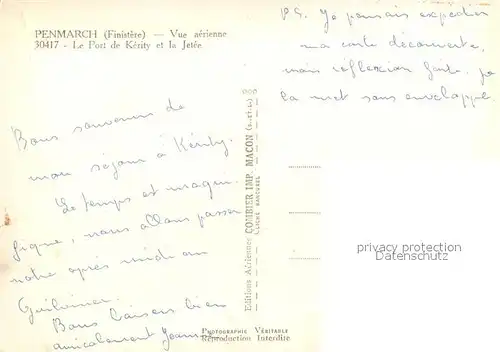 PENMARCH (Finistère) — Vue aérienne
30417 - Le Port de Kérity et la Jetée
Bons souvenirs de
mon séjour à Kérity.
Le temps est magni-
fique, nous allons passer
notre après midi au
Guilvinec.
Bons baisers bien
amicalement Jeanne
P.S. Je pensais expédier
ma carte découverte,
mais réflexion faite je
la met sans enveloppe
Editions Aériennes COMBIER IMP. MACON (S.-et-L.)
PHOTOGRAPHIE VÉRITABLE
Reproduction Interdite
privacy protection
Datenschutz